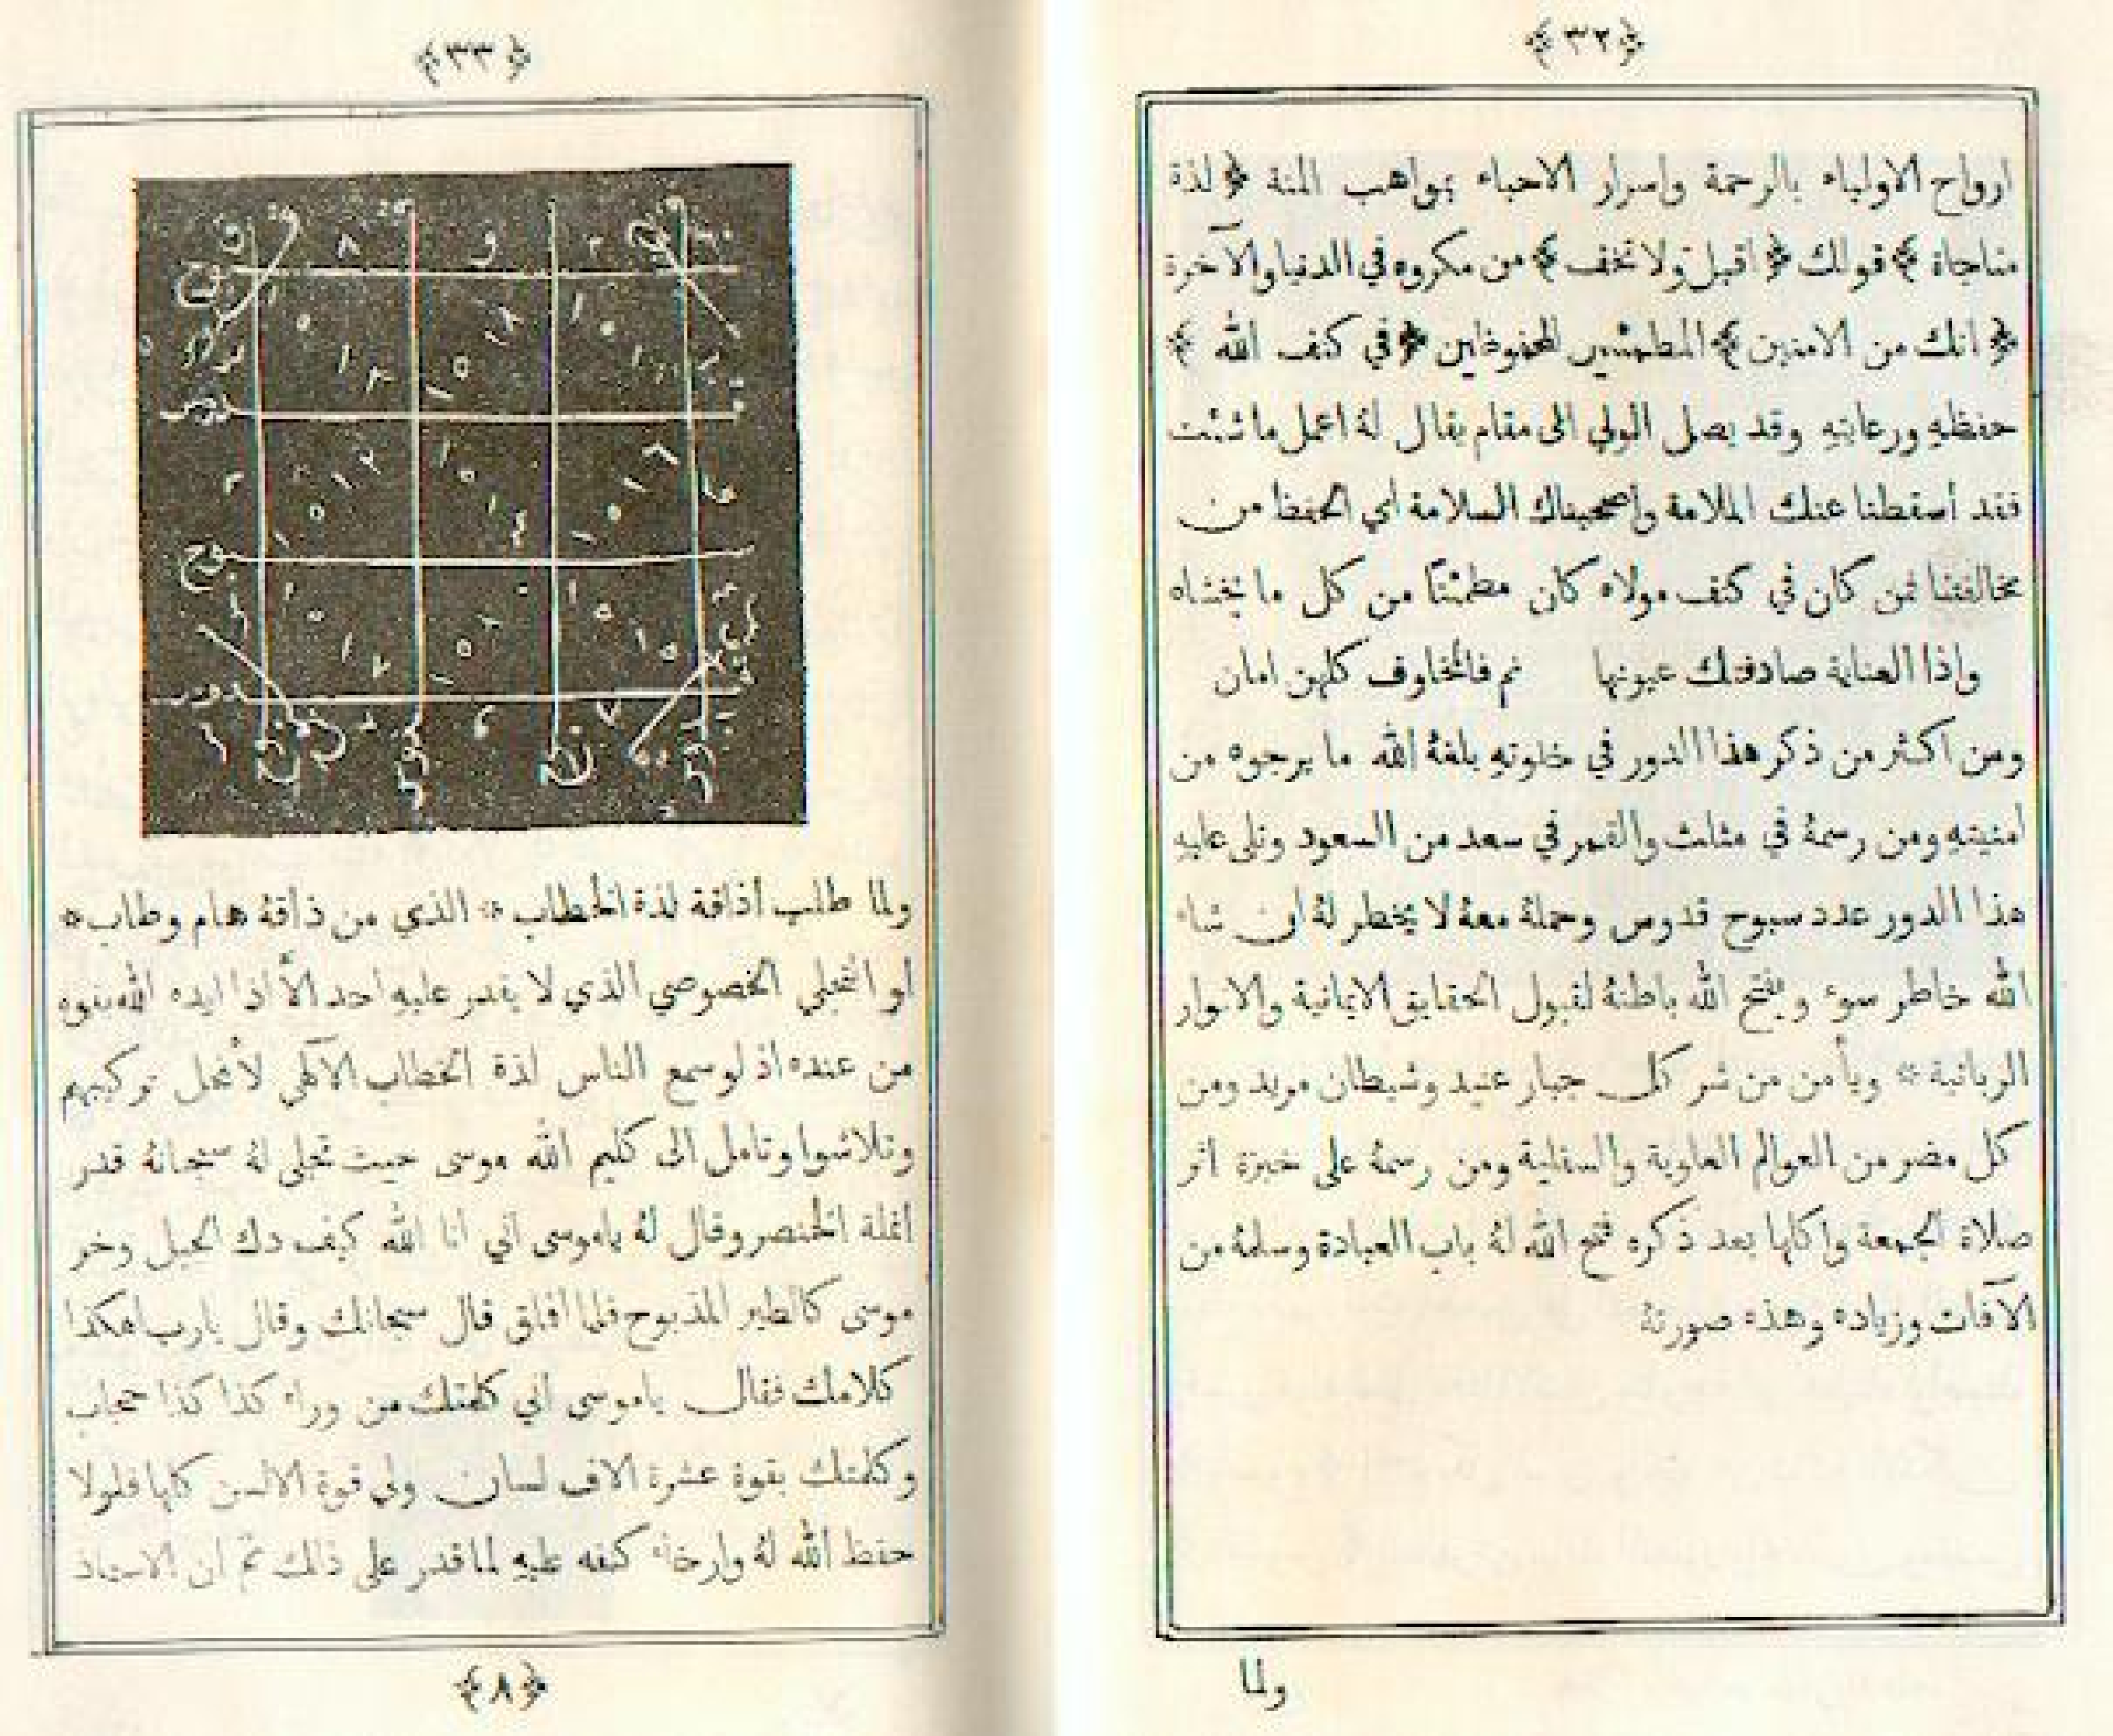 ﴿٣٢﴾
ارواح الاولياء بالرحمة واسرار الاحباء بمواهب المنة ﴿ لذة
مناجاة ﴾ قولك ﴿ اقبل ولا تخف ﴾ من مكروه في الدنيا والآخرة
﴿ انك من الامنين ﴾ المطمئنين المحفوظين ﴿ في كنف الله ﴾
حفظهِ ورعايتهِ وقد يصل الولي الى مقام يقال لهُ اعمل ما شئت
فقد أسقطنا عنك الملامة وأصحبناك السلامة أي الحفظ من
مخالفتنا فمن كان في كنف مولاه كان مطمئنًا من كل ما يخشاه
واذا العناية صادفتك عيونها نم فالمخاوف كلهن امان
ومن اكثر من ذكر هذا الدور في خلوتهِ بلغهُ الله ما يرجوه من
امنيتهِ ومن رسمهُ في مثلث والقمر في سعد من السعود وتلى عليهِ
هذا الدور عدد سبوح قدوس وحملهُ معهُ لا يخطر لهُ ان شاء
الله خاطر سوء ويفتح الله باطنهُ لقبول الحقايق الايمانية والانوار
الربانية * ويأمن من شر كل جبار عنيد وشيطان مريد ومن
كل مضر من العوالم العلوية والسفلية ومن رسمهُ على خبزة اثر
صلاة الجمعة واكلها بعد ذكره فتح الله لهُ باب العبادة وسلمهُ من
الآفات وزياده وهذه صورتهُ
ولما
﴿٣٣﴾
ولما طلب أذاقة لذة الخطاب * الذي من ذاقهُ هام وطاب *
او التجلي الخصوصي الذي لا يقدر عليهِ احد الاَّ اذا ايده الله بقوه
من عنده اذ لو سمع الناس لذة الخطاب الآلهي لأنحل تركيبهم
وتلاشوا وتامل الى كليم الله موسى حيث تجلى لهُ سبحانهُ قدر
انملة الخنصر وقال لهُ ياموسى اني انا الله كيف دك الجبل وخر
موسى كالطير المذبوح فلما افاق قال سبحانك وقال يارب اهكذا
كلامك فقال ياموسى اني كلمتك من وراء كذا كذا حجاب
وكلمتك بقوة عشرة الاف لسان ولي قوة الالسن كلها فلولا
حفظ الله لهُ وارخاء كنفه عليهِ لما قدر على ذلك ثم ان الاستاذ
﴿٨﴾